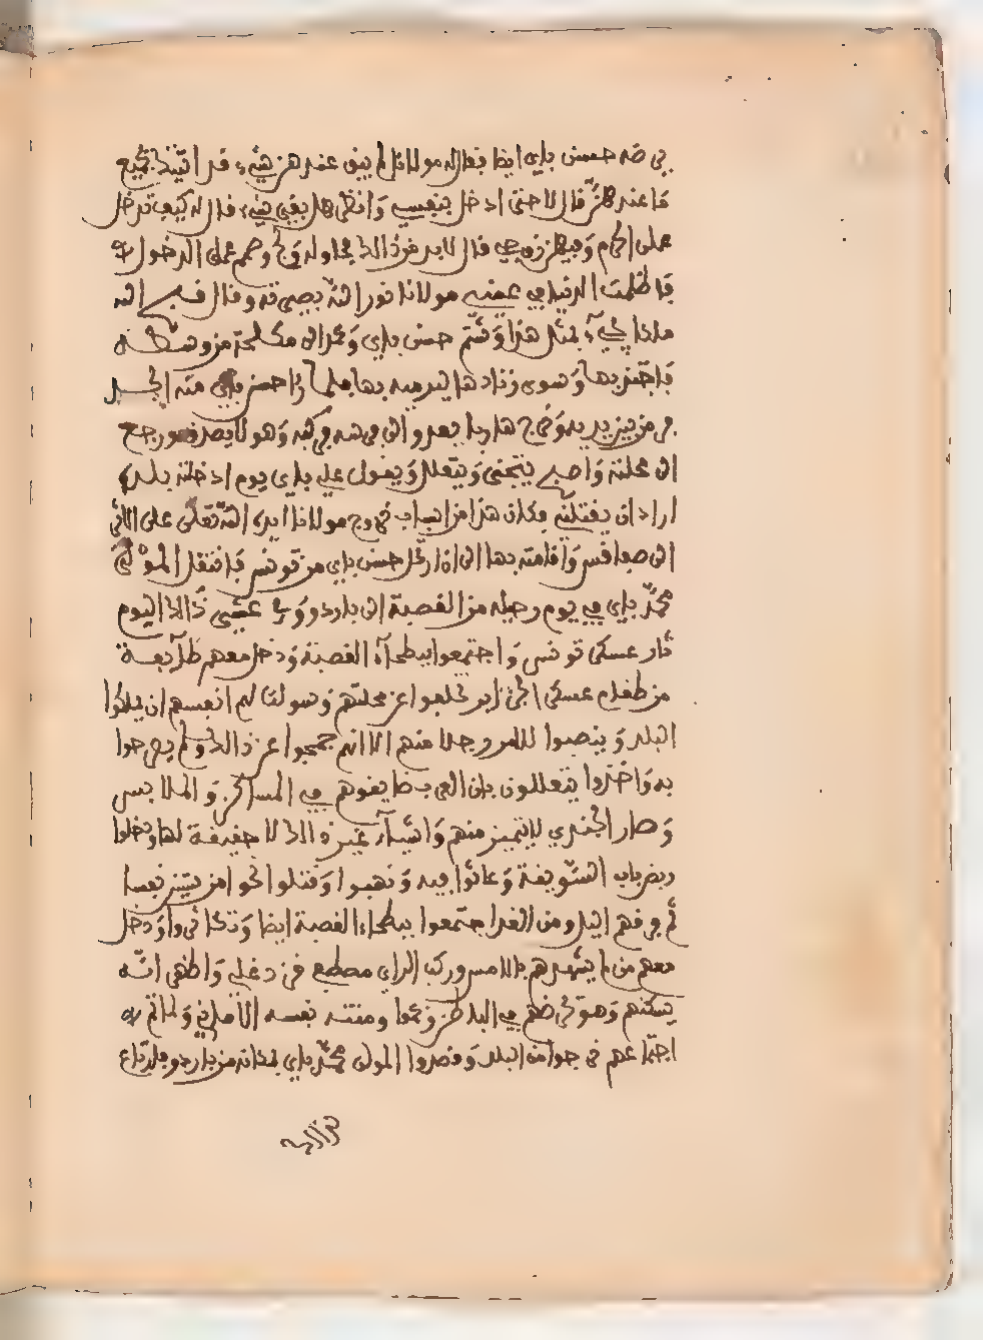 حسن باي ايضا فقال له مولانا لم يبق عندهن شيء قد اتيتك بجميع
ما عندهن قال لا حتى ادخل بنفسي وانظر هل بقي شيء فقال له كيف تدخل
على الحرم وفيهن زوجي قال لا بد من ذالك محاوله ولج وصمم على الدخول
فاظلمت الدنيا في عينيه مولانا نور الله بصيرته وقال
هذا وشتم حسن باي وعمد الى مكحلة من وسطه
فاجتبذها وسوى زنادها ليرميه بها فلما راى حسن باي منه الجد
فر من بين يديه وخرج هاربا يعدو الى فرسه فركبه وهو لا يصدق ورجع
الى محلته واصبح يتجنى ويتعلل ويقول علي باي يوم ادخلته بلدي
اراد ان يقتلني فكان هذا من اسباب خروج مولانا ايده الله تعالى على
الى صفاقس واقامته بها الى ان ارتحل حسن باي من تونس فانتقل المولى
محمد باي في يوم رحيله من القصبة الى باردو وفي عشي ذالك اليوم
ثار عسكر تونس واجتمعوا ببطحاء القصبة ودخل معهم طائفة
من طغام عسكر الجزاير تخلفوا عن محلتهم وسولت لهم انفسهم ان يملكوا
البلد وينصبوا للامر رجلا منهم الا انهم جمجموا عن ذالك ولم يصرحوا
به واخذوا يتعللون بان العرب ضايقوهم في المساكن والملابس
وصار الجندي لا يتميز منهم واشياء غير ذالك لا حقيقة لها ودخلوا
ربض باب السويقة وعاثوا فيه ونهبوا وقتلوا نحوا من ستين نفسا
ثم فرقهم الليل ومن الغد اجتمعوا ببطحاء القصبة ايضا وتذامروا ودخل
معهم من لم يشهدهم بالامس وركب الداي مصطفى قره دغلي واظهر انه
يسكنهم وهو في البلد ومنته نفسه الاماني ولما تم
اجتماعهم خرجوا من البلد وقصدوا المولى محمد باي بمكانه من باردو